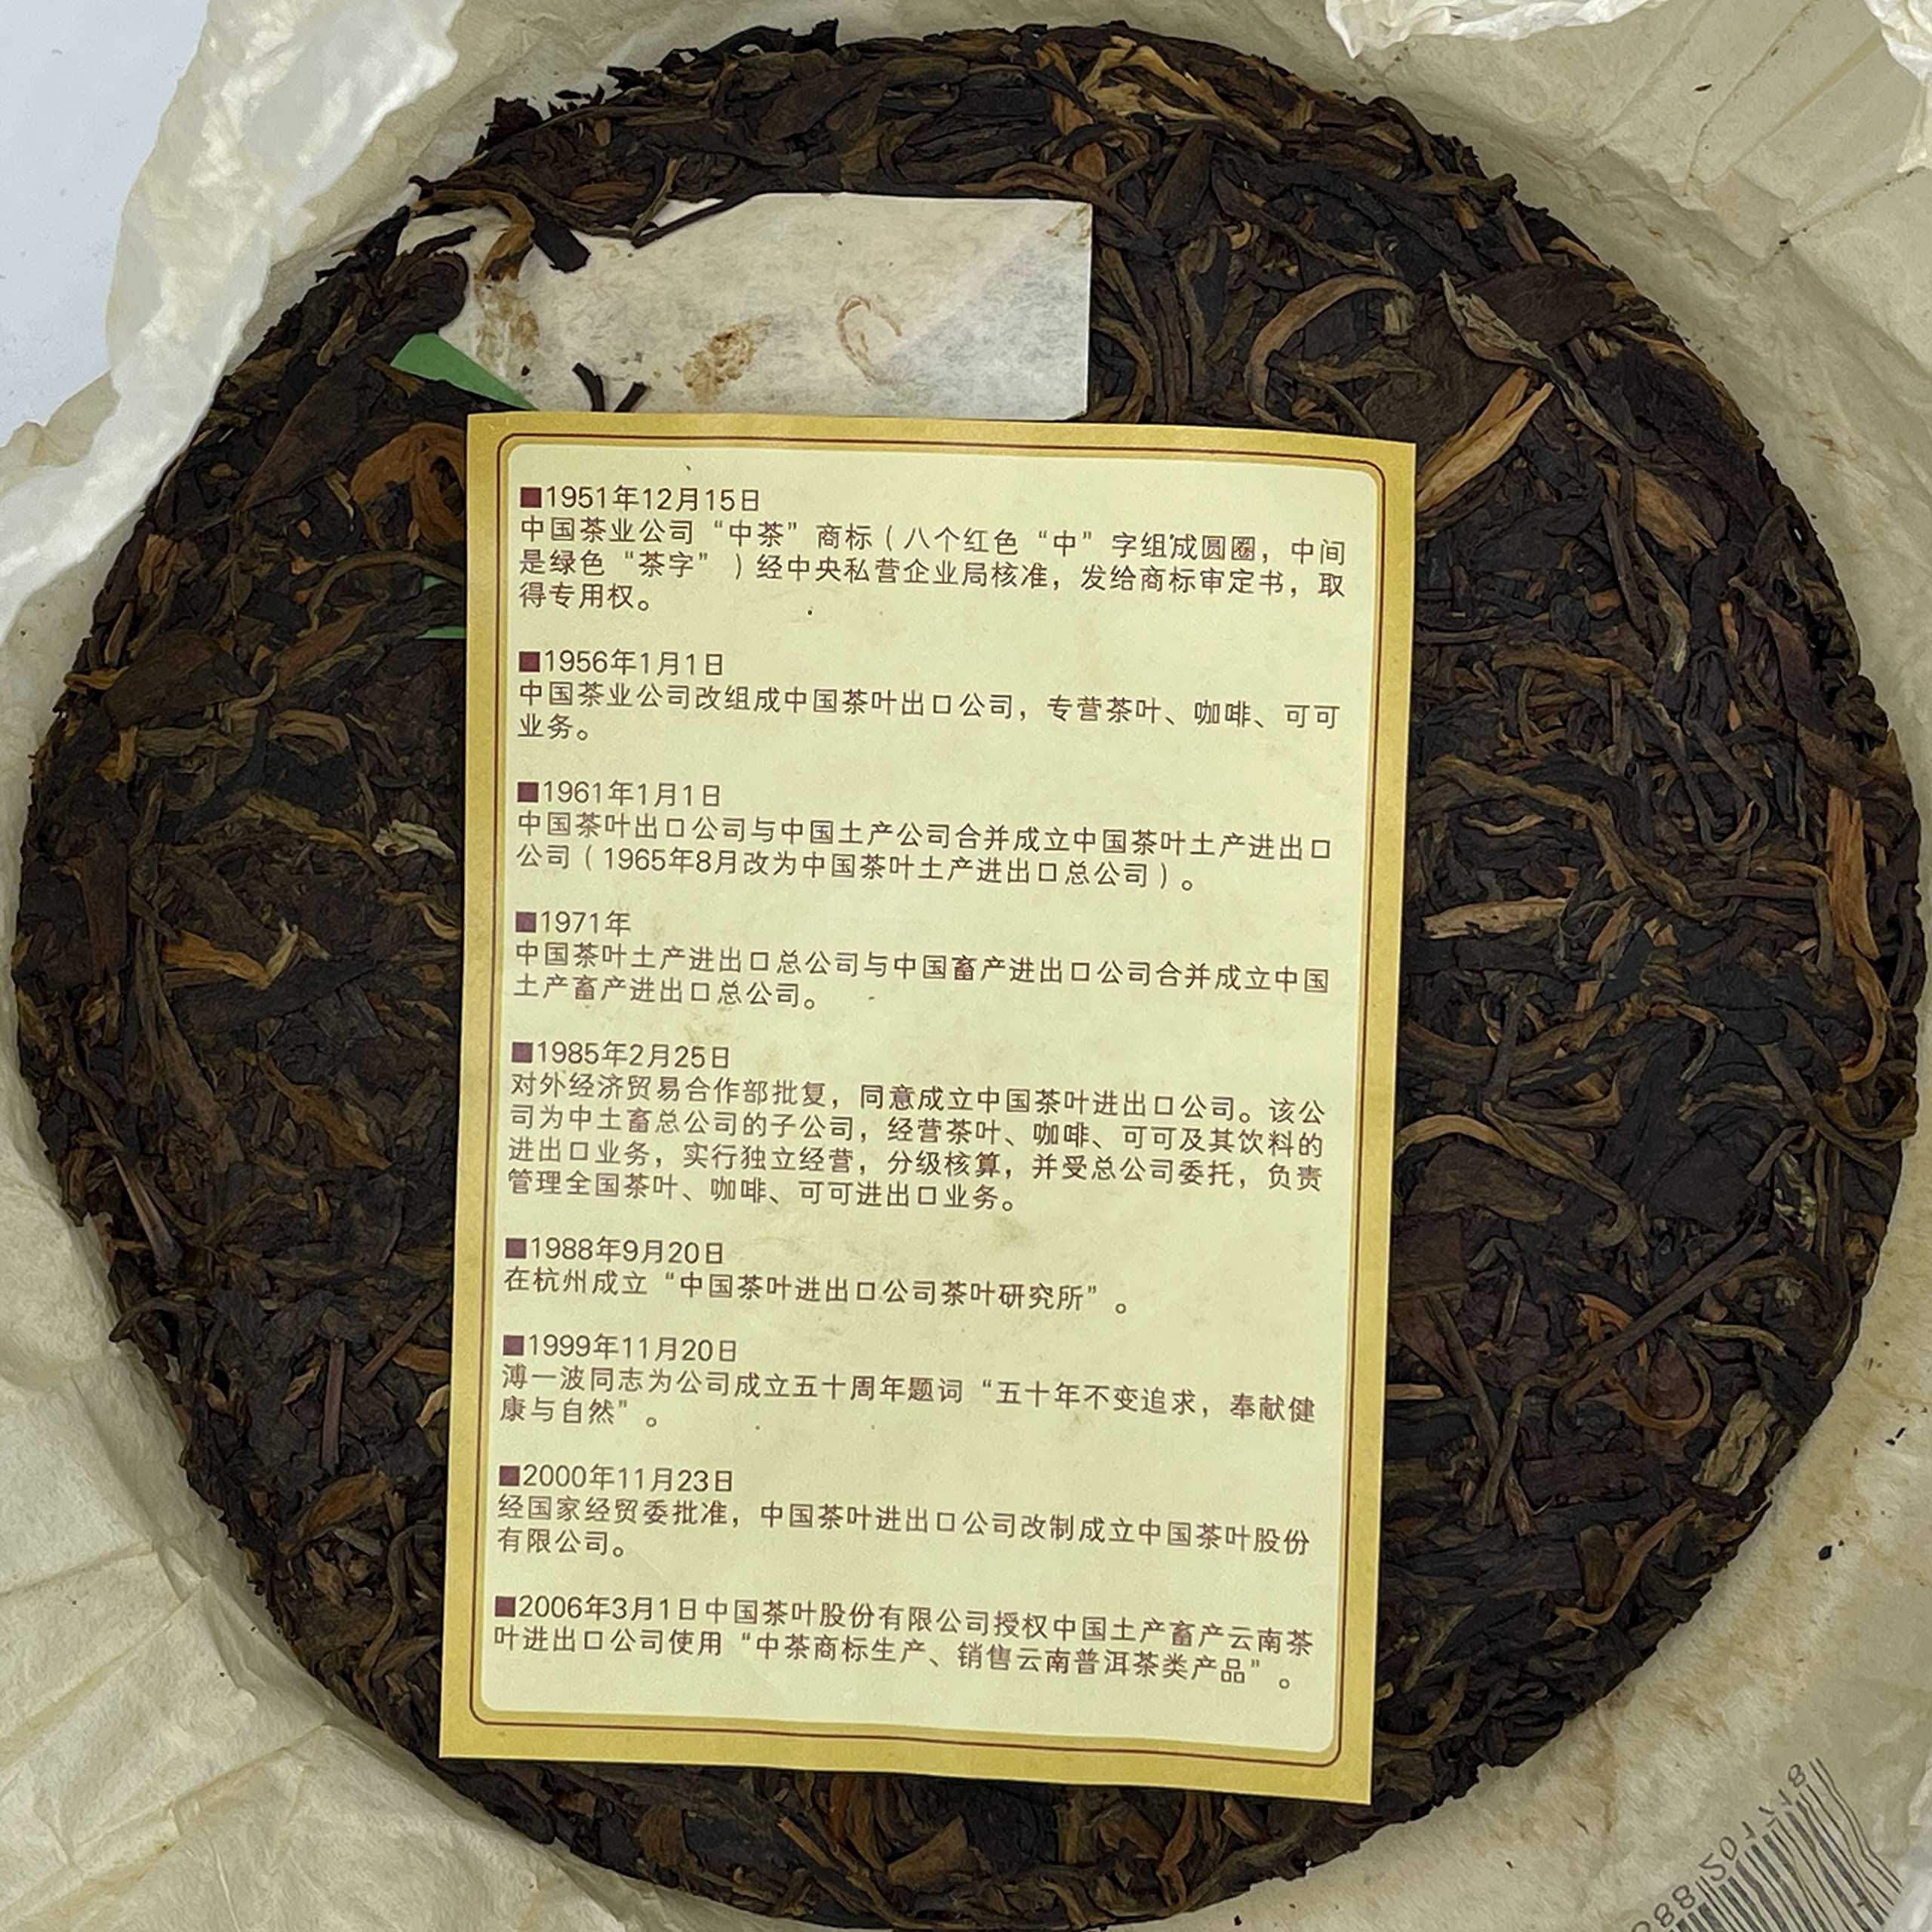 ■1951年12月15日
中国茶业公司“中茶”商标(八个红色“中”字组成圆圈，中间
是绿色“茶字”)经中央私营企业局核准，发给商标审定书，取
得专用权。
■1956年1月1日
中国茶业公司改组成中国茶叶出口公司，专营茶叶、咖啡、可可
业务。
■1961年1月1日
中国茶叶出口公司与中国土产公司合并成立中国茶叶土产进出口
公司(1965年8月改为中国茶叶土产进出口总公司)。
■1971年
中国茶叶土产进出口总公司与中国畜产进出口公司合并成立中国
土产畜产进出口总公司。
■1985年2月25日
对外经济贸易合作部批复，同意成立中国茶叶进出口公司。该公
司为中土畜总公司的子公司，经营茶叶、咖啡、可可及其饮料的
进出口业务，实行独立经营，分级核算，并受总公司委托，负责
管理全国茶叶、咖啡、可可进出口业务。
■1988年9月20日
在杭州成立“中国茶叶进出口公司茶叶研究所”。
■1999年11月20日
溥一波同志为公司成立五十周年题词“五十年不变追求，奉献健
康与自然”。
■2000年11月23日
经国家经贸委批准，中国茶叶进出口公司改制成立中国茶叶股份
有限公司。
■2006年3月1日中国茶叶股份有限公司授权中国土产畜产云南茶
叶进出口公司使用“中茶商标生产、销售云南普洱茶类产品”。